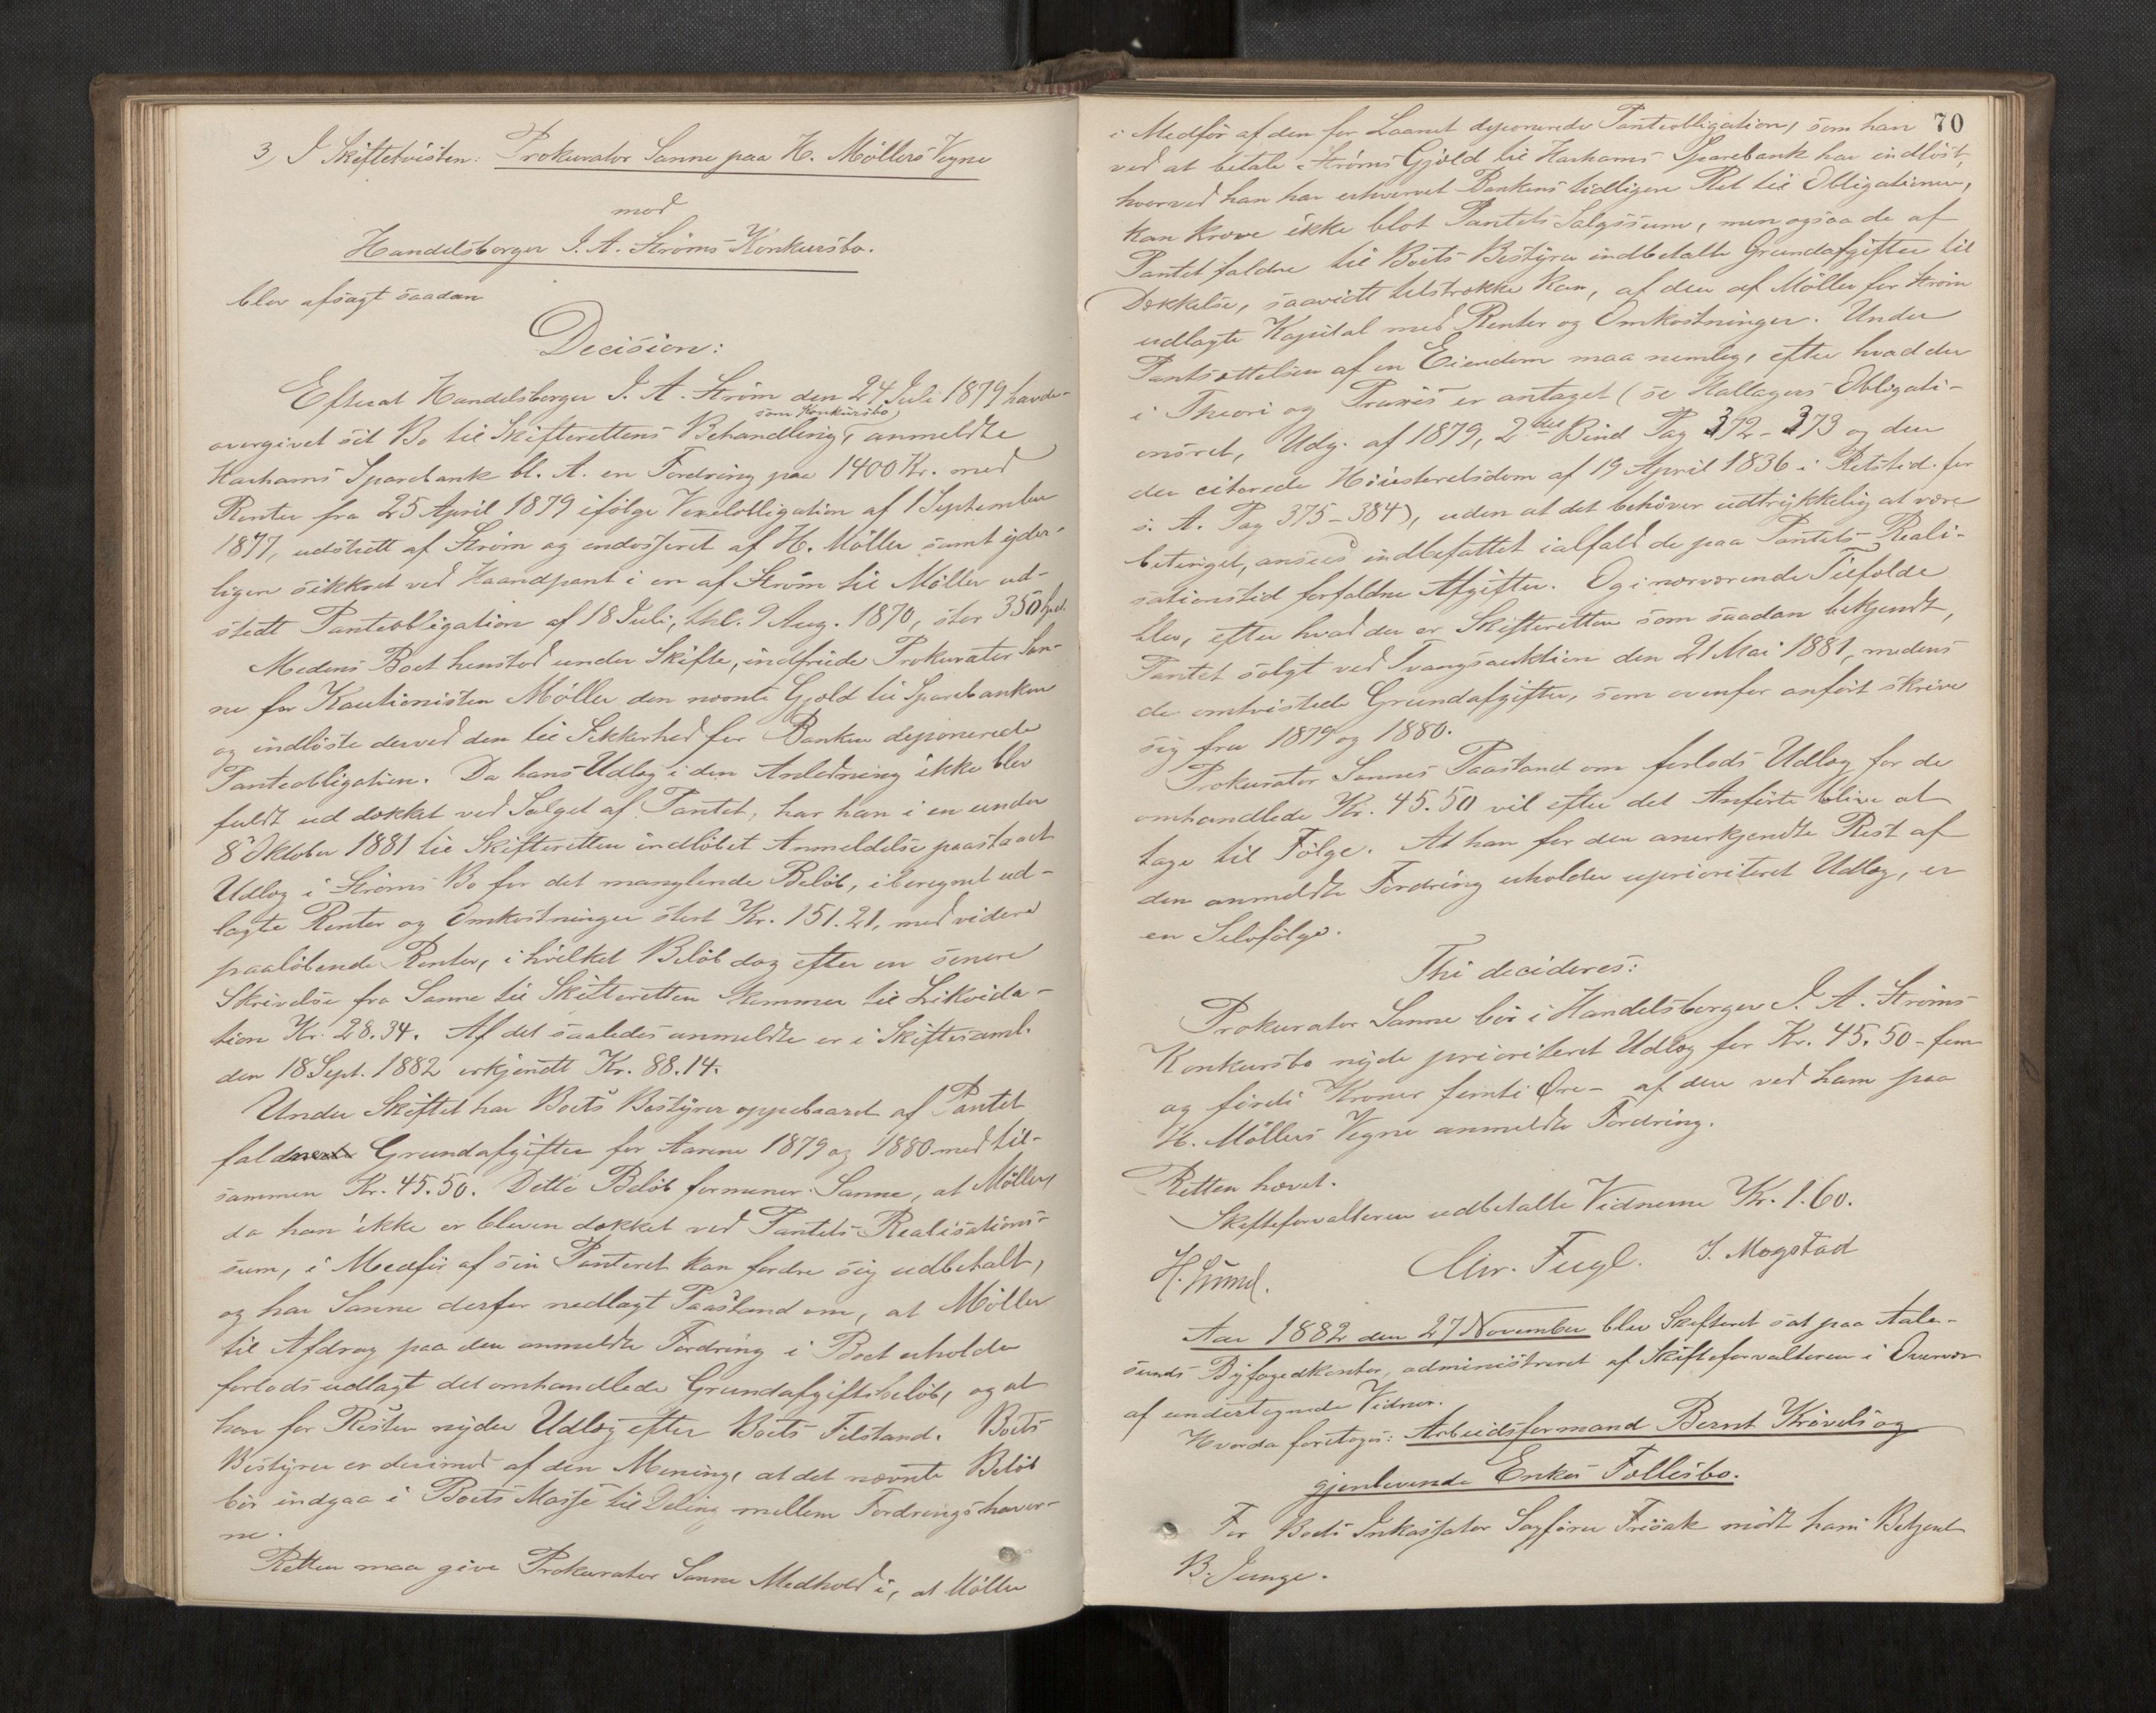 3, I Skiftetvisten: Prokurator Sanne paa H. Möllers Vegne
mod
Handelsborger I. A. Ströms Konkursbo.
blev afsagt saadan
Decision:
Efterat Handelsborger I. A. Ström den 24 Juli 1879 havde
overgivet sit Bo til Skifterettens Behandling som Konkursbo, anmeldte
Harhams Sparebank bl. A. en Fordring paa 1400 Kr. med
Renter fra 25 April 1879 ifölge Vexelobligation af 1 September
1877, udstedt af Ström og endosseret af H. Möller samt yder-
ligere sikkret ved Haandpant i en af Ström til Möller ud-
stedt Panteobligation af 18 Juli, thl. 9 Aug. 1870, stor 350 Spd.
Medens Boet henstod under Skifte, indfriede Prokurator San-
ne for Kautionisten Möller den nævnte Gjæld til Sparebanken
og indlöste derved den til Sikkerhed for Banken deponerede
Panteobligation. Da hans Udlæg i den Anledning ikke blev
fuldt ud dækket ved Salget af Pantet, har han i en under
8 Oktober 1881 til Skifteretten indlöbet Anmeldelse paastaaet
Udlæg i Ströms Bo for det manglende Belöb, iberegnet ud-
lagte Renter og Omkostninger stort Kr. 151.21, med videre
paalöbende Renter, i hvilket Belöb dog efter en senere
Skrivelse fra Sanne til Skifteretten kommer til Likvida-
tion Kr. 28.34. Af det saaledes anmeldte er i Skiftesaml.
den 18 Sept. 1882 erkjendt Kr. 88.14.
Under Skiftet har Boets Bestyrer oppebaaret af Pantet
faldne Grundafgifter for Aarene 1879 og 1880 med til-
sammen Kr. 45.50. Dette Belöb formener Sanne, at Möller,
da han ikke er bleven dækket ved Pantets Realisations-
sum, i Medför af sin Panteret kan fordre sig udbetalt,
og har Sanne derfor nedlagt Paastand om, at Möller
til Afdrag paa den anmeldte Fordring i Boet erholder
forlods udlagt det omhandlede Grundafgiftsbelöb, og at
han for Resten nyder Udlæg efter Boets Tilstand. Boets
Bestyrer er derimod af den Mening, at det nævnte Belöb
bör indgaa i Boets Masse til Deling mellem Fordringshaver-
ne.
Retten maa give Prokurator Sanne Medhold i, at Möller
70
i Medför af den for Laanet deponerede Panteobligation, som han
ved at betale Ströms Gjæld til Harhams Sparebank har indlöst,
hvorved han har erhvervet Bankens tidligere Ret til Obligationen,
kan kræve ikke blot Pantets Salgssum, men ogsaa de af
Pantet faldne til Boets Bestyrer indbetalte Grundafgifter til
Dækkelse, saavidt tilstrække kan, af den af Möller for Ström
udlagte Kapital med Renter og Omkostninger. Under
Pantsættelsen af en Eiendom maa nemlig, efter hvad der
i Theori og Praxis er antaget (se Hallagers Obligati-
onsret, Udg. af 1879, 2det Bind Pag 372-373 og den
der citerede Höiesteretsdom af 19 April 1836 i Retstid. for
s. A. Pag 375-384), uden at det behöver udtrykkelig at være
betinget, ansees indbefattet ialfald de paa Pantets Reali-
sationstid forfaldne Afgifter. Og i nærværende Tilfælde
blev, efter hvad der er Skifteretten som saadan bekjendt,
Pantet solgt ved Tvangsauktion den 21 Mai 1881, medens
de omtvistede Grundafgifter, som ovenfor anfört skrive
sig fra 1879 og 1880.
Prokurator Sannes Paastand om forlods Udlæg for de
omhandlede Kr. 45.50 vil efter det Anförte blive at
tage til Fölge. At han for den anerkjendte Rest af
den anmeldte Fordring erholder uprioriteret Udlæg, er
en Selvfölge.
Thi decideres:
Prokurator Sanne bör i Handelsborger I. A. Ströms
Konkursbo nyde prioriteret Udlæg for Kr. 45.50 - fem
og firti Kroner femti Öre - af den ved ham paa
H. Möllers Vegne anmeldte Fordring.
Retten hævet.
Skifteforvalteren udbetalte Vidnerne Kr. 1.60.
Chr. Fugl. I. Mogstad
Aar 1882 den 27 November blev Skifteret sat paa Aale-
sunds Byfogedkontor, administreret af Skifteforvalteren i Overvær
af undertegnede Vidner.
Hvorda foretoges: Arbeidsformand Bernt Krövels og
gjenlevende Enkes Fællesbo.
For Boets Inkassator Sagförer Frisak mödte hans Betjent
B. Junge.